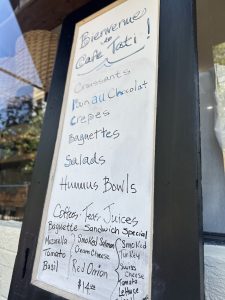 Bienvenue
de
Café Tati !
Croissants
Pain au Chocolat
Crepes
Baguettes
Salads
Hummus Bowls
Coffees, Teas, Juices
Baguette Sandwich Special
Mozzarella
Tomato
Basil
Smoked Salmon
Cream Cheese
Red Onion
Smoked
Turkey
Swiss
Cheese
Tomato
Lettuce
$14.00